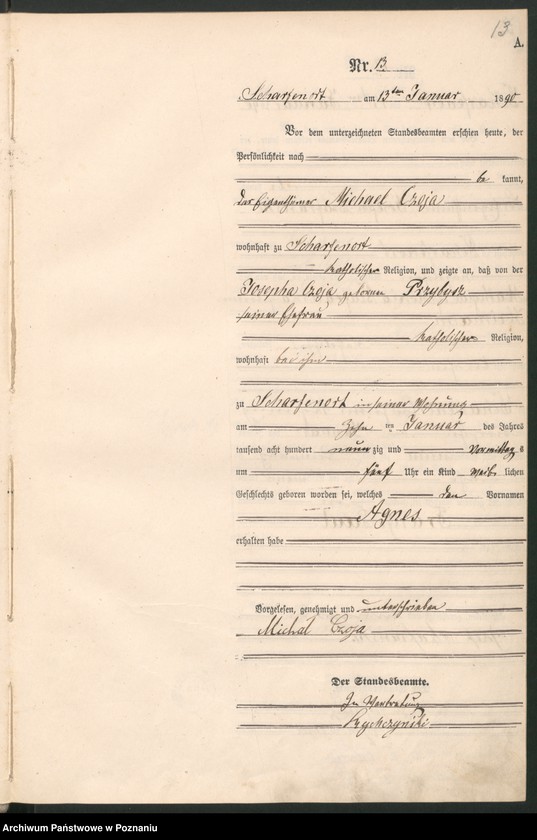 13
A.
Nr. 13
Scharfenort am 13ten Januar 1890
Vor dem unterzeichneten Standesbeamten erschien heute, der
Persönlichkeit nach
be kannt,
der Eigenthümer Michael Czoja
wohnhaft zu Scharfenort
katholischer Religion, und zeigte an, daß von der
Josepha Czoja geborene Przybysz
seiner Ehefrau
katholischer Religion,
wohnhaft bei ihm
zu Scharfenort in seiner Wohnung
am zehn ten Januar des Jahres
tausend acht hundert neun zig und Vormittag s
um fünf Uhr ein Kind weib lichen
Geschlechts geboren worden sei, welches den Vornamen
Agnes
erhalten habe
Vorgelesen, genehmigt und unterschrieben
Michał Czoja
Der Standesbeamte.
In Vertretung
Archiwum Państwowe w Poznaniu